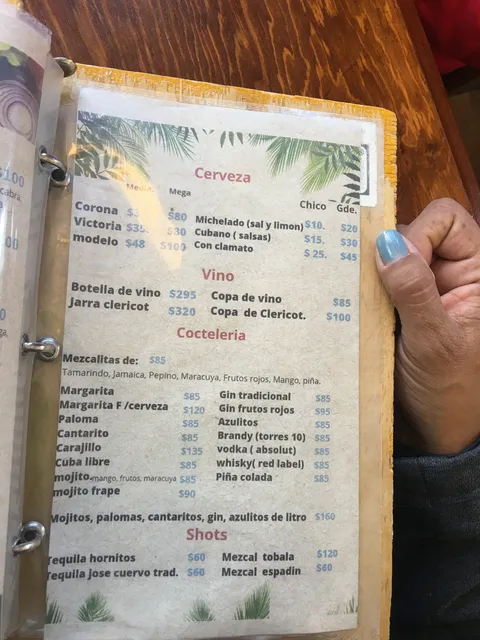 $100
cabra,
00
Cerveza
Media Mega
Chico Gde.
Corona $80 Michelado (sal y limon) $10. $20
Victoria Cubano ( salsas) $15. $30
modelo $48 $100 Con clamato $ 25. $45
Vino
Botella de vino $295 Copa de vino $85
Jarra clericot $320 Copa de Clericot. $100
Cocteleria
Mezcalitas de: $85
Tamarindo, Jamaica, Pepino, Maracuya, Frutos rojos, Mango, piña.
Margarita $85 Gin tradicional $85
Margarita F /cerveza $120 Gin frutos rojos $95
Paloma $85 Azulitos $85
Cantarito $85 Brandy (torres 10) $85
Carajillo $135 vodka ( absolut) $85
Cuba libre $85 whisky( red label) $85
mojito.-mango, frutos, maracuya $85 Piña colada $85
mojito frape $90
Mojitos, palomas, cantaritos, gin, azulitos de litro $160
Shots
Tequila hornitos $60 Mezcal tobala $120
Tequila jose cuervo trad. $60 Mezcal espadin $60